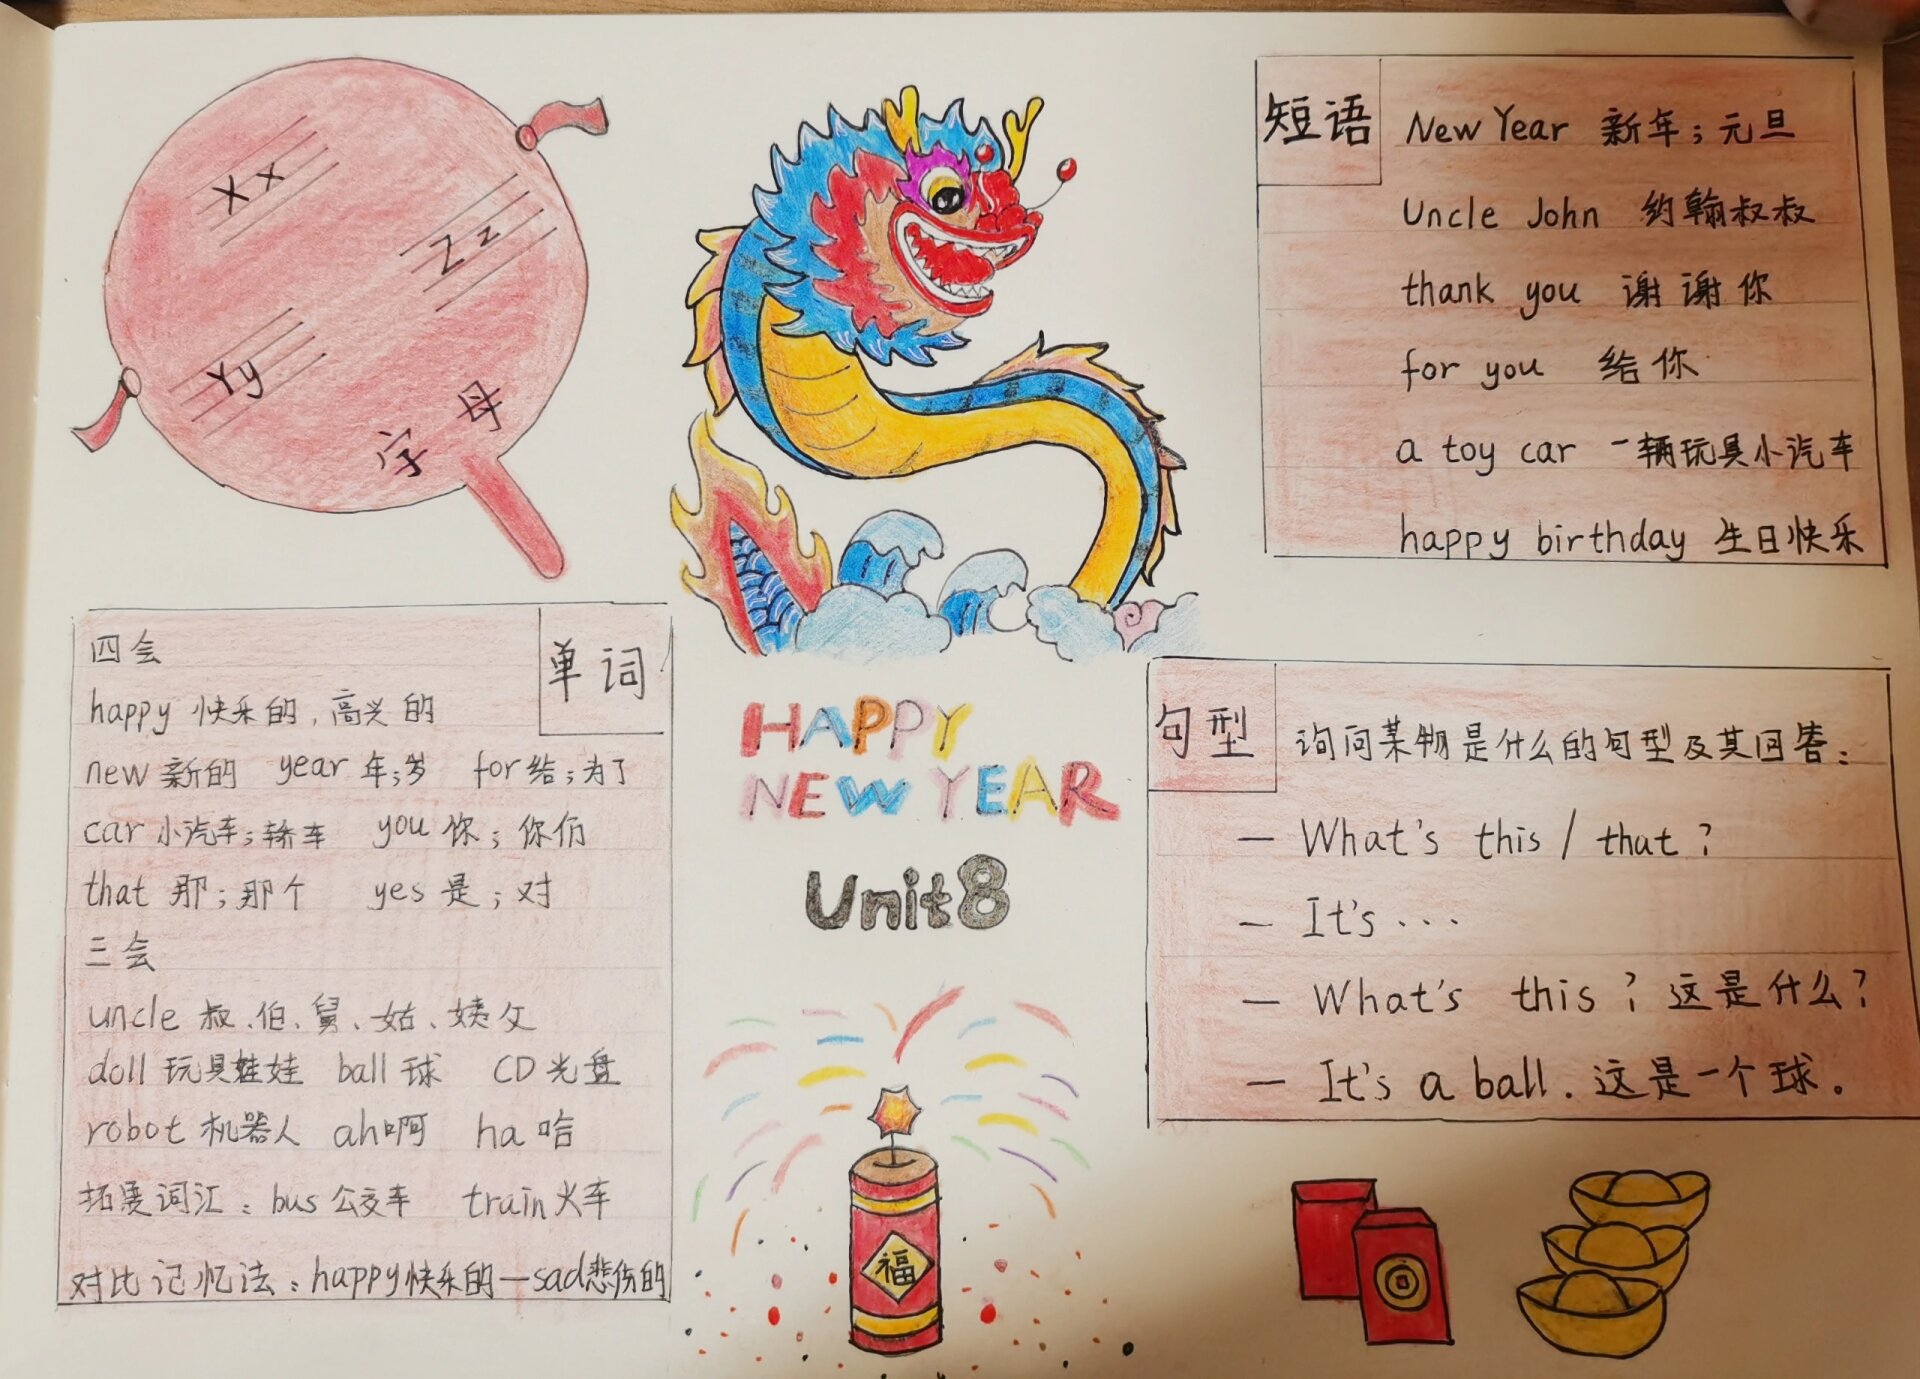 Xx
Zz
Yy
字母
短语
New Year 新年；元旦
Uncle John 约翰叔叔
thank you 谢谢你
for you 给你
a toy car 一辆玩具小汽车
happy birthday 生日快乐
单词
四会
happy 快乐的，高兴的
new 新的 year 年；岁 for 给；为了
car 小汽车；轿车 you 你；你们
that 那；那个 yes 是；对
三会
uncle 叔、伯、舅、姑、姨父
doll 玩具娃娃 ball 球 CD 光盘
robot 机器人 ah 啊 ha 哈
拓展词汇：bus 公交车 train 火车
对比记忆法：happy快乐的—sad悲伤的
HAPPY
NEW YEAR
Unit8
福
句型
询问某物是什么的句型及其回答：
— What's this / that？
— It's ...
— What's this？这是什么？
— It's a ball. 这是一个球。